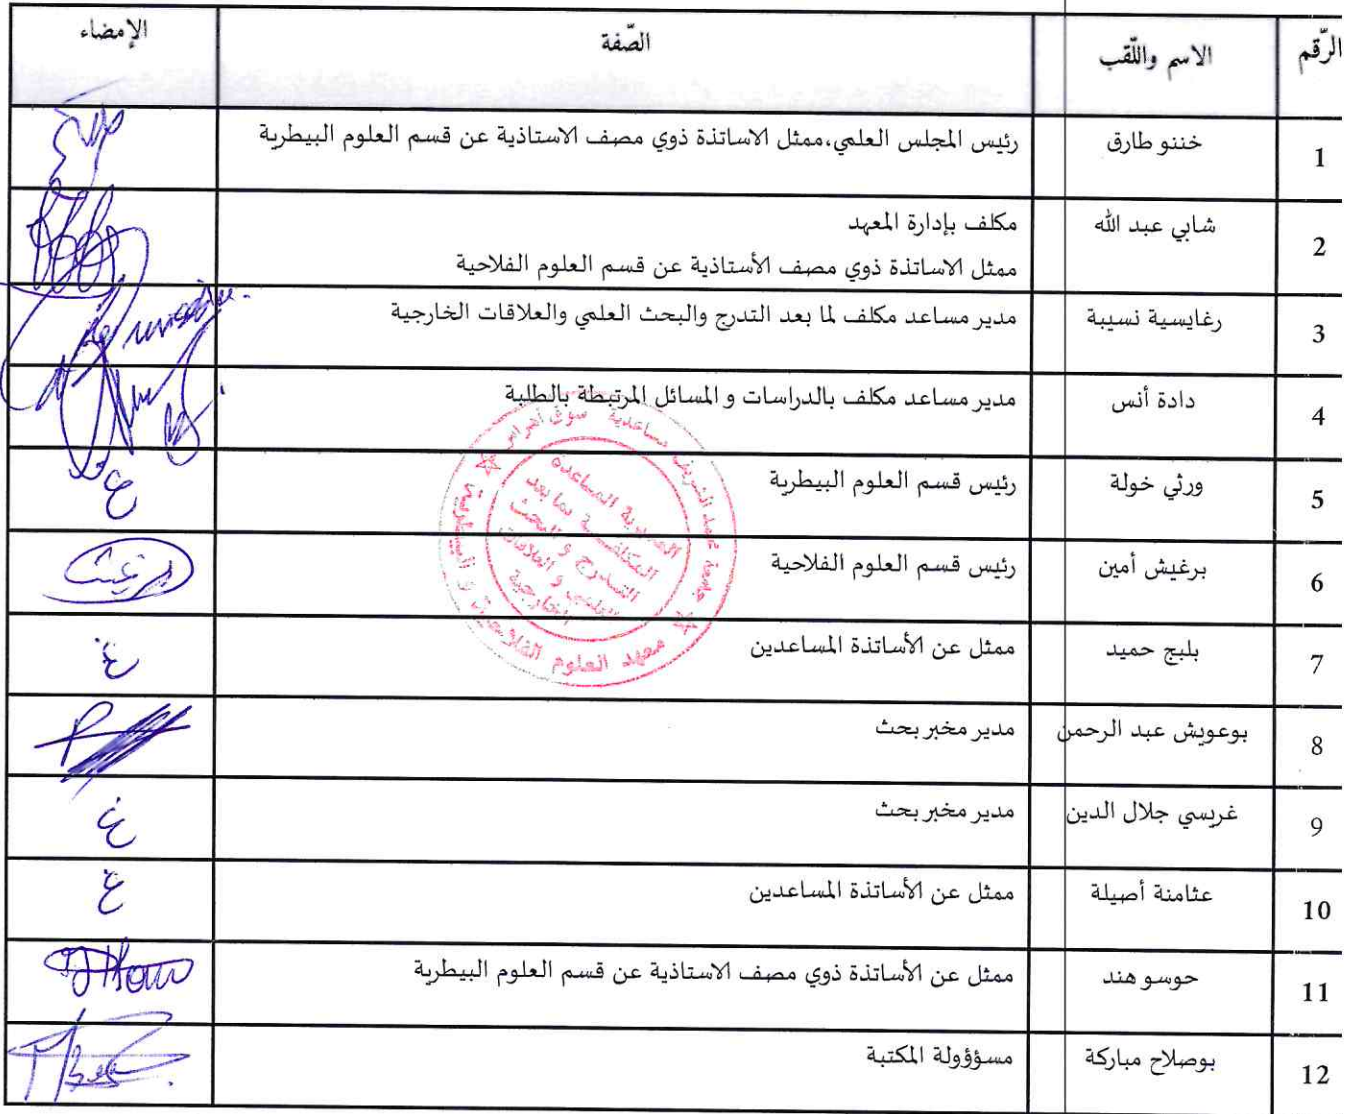 الرّقم الاسم واللّقب الصّفة الإمضاء
1 خننو طارق رئيس المجلس العلمي،ممثل الاساتذة ذوي مصف الاستاذية عن قسم العلوم البيطرية
2 شابي عبد الله مكلف بإدارة المعهد
ممثل الاساتذة ذوي مصف الأستاذية عن قسم العلوم الفلاحية
3 رغايسية نسيبة مدير مساعد مكلف لما بعد التدرج والبحث العلمي والعلاقات الخارجية
4 دادة أنس مدير مساعد مكلف بالدراسات و المسائل المرتبطة بالطلبة
5 ورثي خولة رئيس قسم العلوم البيطرية غ
6 برغيش أمين رئيس قسم العلوم الفلاحية
7 بليج حميد ممثل عن الأساتذة المساعدين غ
8 بوعويش عبد الرحمن مدير مخبر بحث
9 غريسي جلال الدين مدير مخبر بحث غ
10 عثامنة أصيلة ممثل عن الأساتذة المساعدين غ
11 حوسو هند ممثل عن الأساتذة ذوي مصف الاستاذية عن قسم العلوم البيطرية
12 بوصلاح مباركة مسؤؤولة المكتبة
المديرية المساعدة
المكلفة بما بعد
التدرج و البحث
العلمي و العلاقات
الخارجية